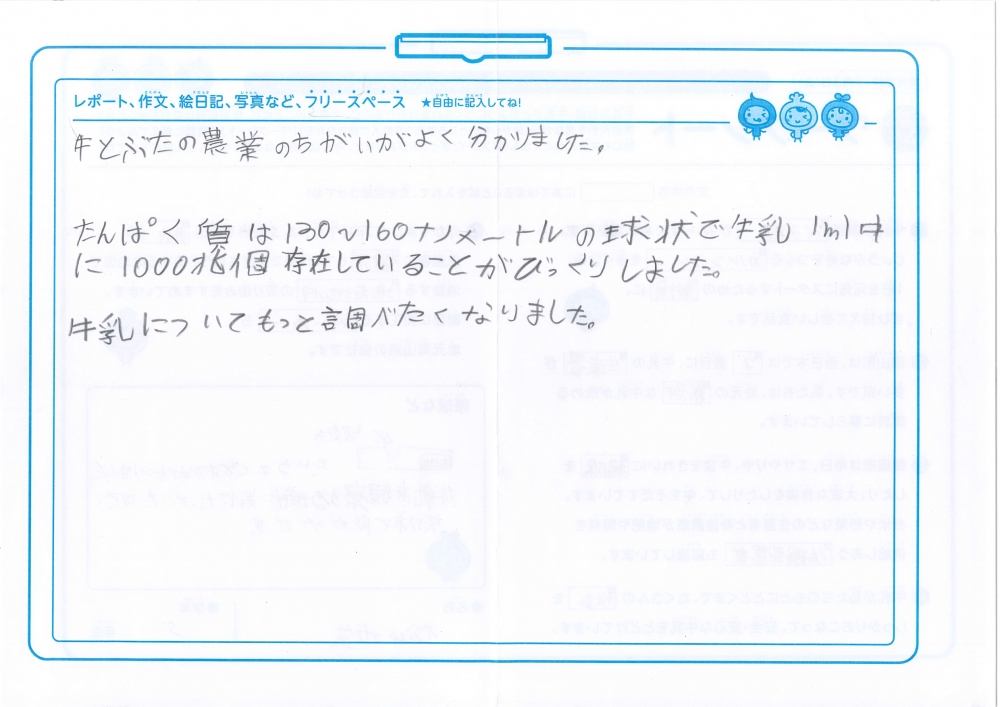 レポート、作文、絵日記、写真など、フリースペース ★自由に記入してね!
牛とぶたの農業のちがいがよく分かりました。
たんぱく質は130〜160ナノメートルの球状で牛乳1ml中
に1000兆個存在していることがびっくりしました。
牛乳についてもっと調べたくなりました。